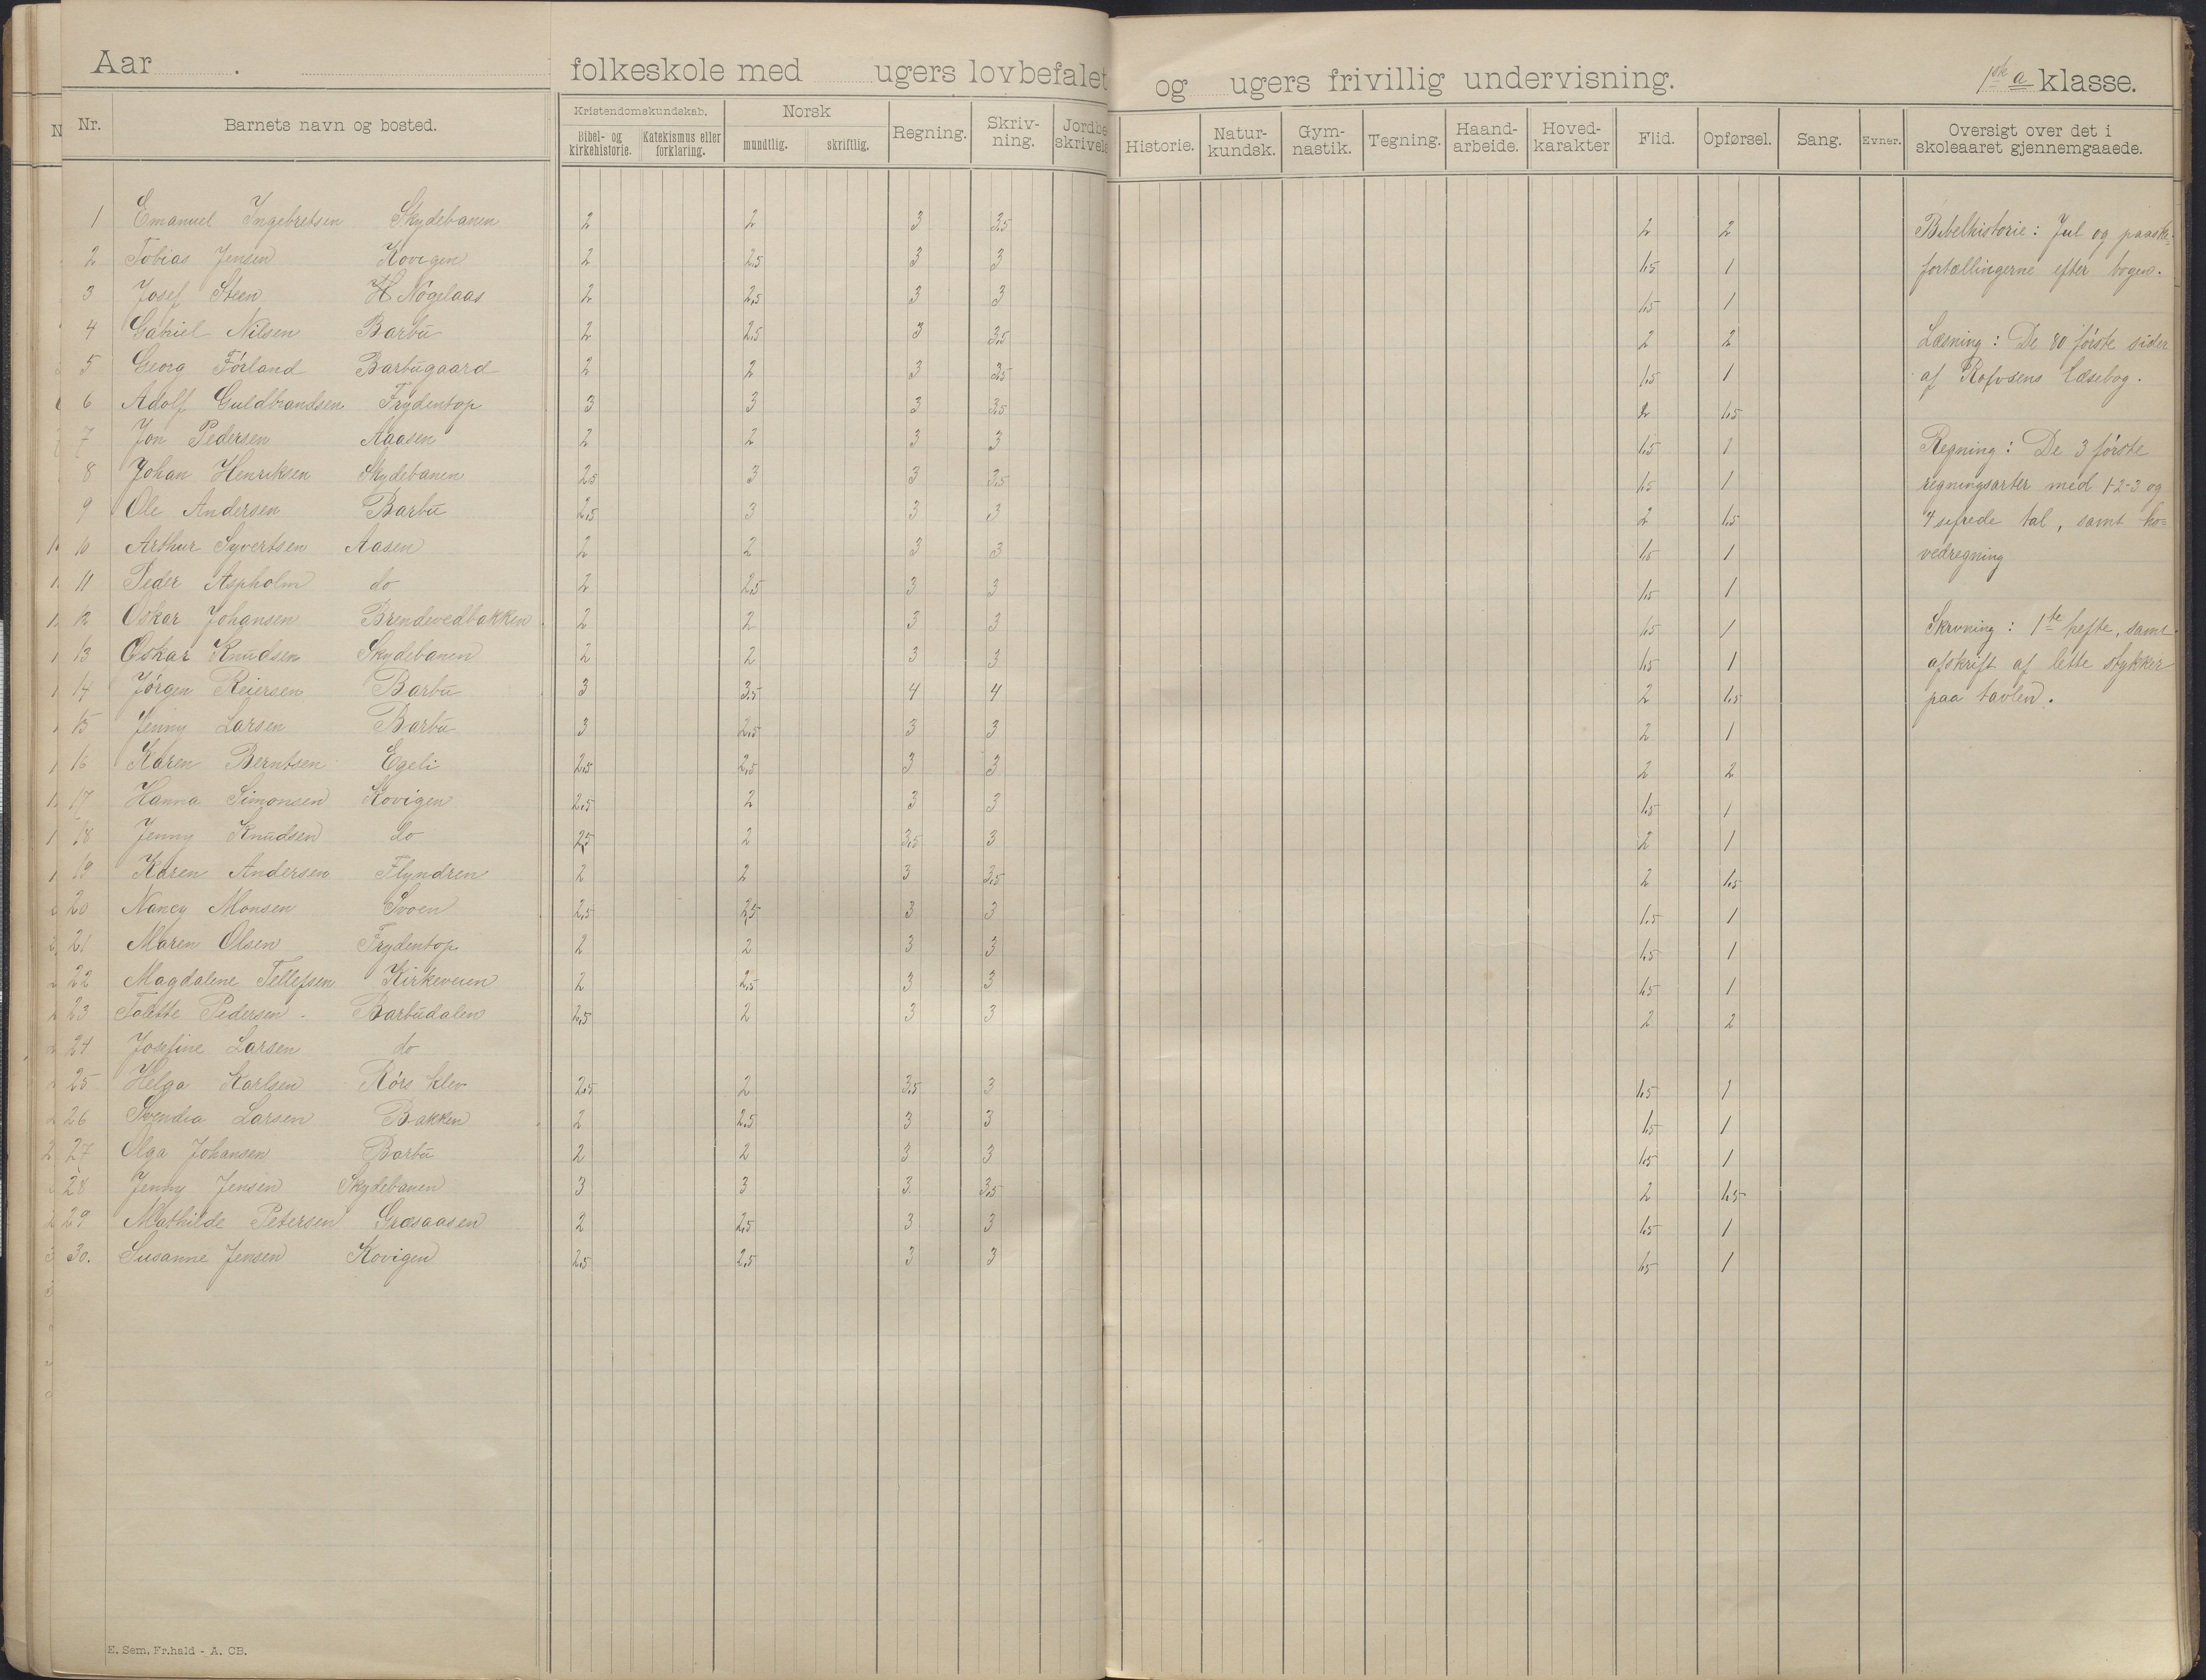 Aar . folkeskole med ugers lovbefalet og ugers frivillig undervisning. 1ste a klasse.
Nr. Barnets navn og bosted. Kristendomskundskab. Bibel- og kirkehistorie. Katekismus eller forklaring. Norsk mundtlig. skriftlig. Regning. Skriv-ning. Jordbe skrivels Historie. Natur-kundsk. Gym-nastik. Tegning. Haand-arbeide. Hoved-karakter Flid. Opførsel. Sang. Evner. Oversigt over det i skoleaaret gjennemgaaede.
1 Emanuel Ingebretsen Skydebanen 2 2 3 3.5 2 2
2 Tobias Jensen Kovigen 2 2.5 3 3 1.5 1
3 Josef Steen H Nögelaas 2 2.5 3 3 1.5 1
4 Gabriel Nilsen Barbu 2 2.5 3 3.5 2 2
5 Georg Förland Barbugaard 2 2 3 3.5 1.5 1
6 Adolf Guldbrandsen Frydentop 3 3 3 3.5 2 1.5
7 Jon Pedersen Aaasen 2 2 3 3 1.5 1
8 Johan Henriksen Skydebanen 2.5 3 3 3.5 1.5 1
9 Ole Andersen Barbu 2.5 3 3 3 2 1.5
10 Arthur Syvertsen Aasen 2 2 3 3 1.5 1
11 Peder Aspholm do 2 2.5 3 3 1.5 1
12 Oskar Johansen Brendevedbakken 2 2 3 3 1.5 1
13 Oskar Knudsen Skydebanen 2 2 3 3 1.5 1
14 Jörgen Reiersen Barbu 3 3.5 4 4 2 1.5
15 Jenny Larsen Barbu 3 2.5 3 3 2 1
16 Karen Berntsen Egeli 2.5 2.5 3 3 2 2
17 Hanna Simonsen Kovigen 2.5 2 3 3 1.5 1
18 Jenny Knudsen do 2.5 2 3.5 3 2 1
19 Karen Andersen Flyndren 2 2 3 3.5 2 1.5
20 Nancy Monsen Svoen 2.5 2.5 3 3 1.5 1
21 Maren Olsen Frydentop 2 2 3 3 1.5 1
22 Magdalene Tellefsen Kirkeveien 2 2.5 3 3 1.5 1
23 Tolette Pedersen Barbudalen 2.5 2 3 3 2 2
24 Josefine Larsen do
25 Helga Karlsen Rörs klev 2.5 2 3.5 3 1.5 1
26 Svendia Larsen Bakken 2 2.5 3 3 1.5 1
27 Olga Johansen Barbu 2 2 3 3 1.5 1
28 Jenny Jensen Skydebanen 3 3 3 3.5 2 1.5
29 Mathilde Petersen Grosaasen 2 2.5 3 3 1.5 1
30. Susanne Jensen Kovigen 2.5 2.5 3 3 1.5 1
Bibelhistorie: Jul og paaske-
fortællingerne efter bogen.
Læsning: De 80 förste sider
af Rolvsens læsebog.
Regning: De 3 förste
regningsarter med 1-2-3 og
4 sifrede tal, samt ho=
vedregning
Skrivning: 1ste hefte, samt
afskrift af lette stykker
paa tavlen.
E. Sem, Fr.hald - A. CB.